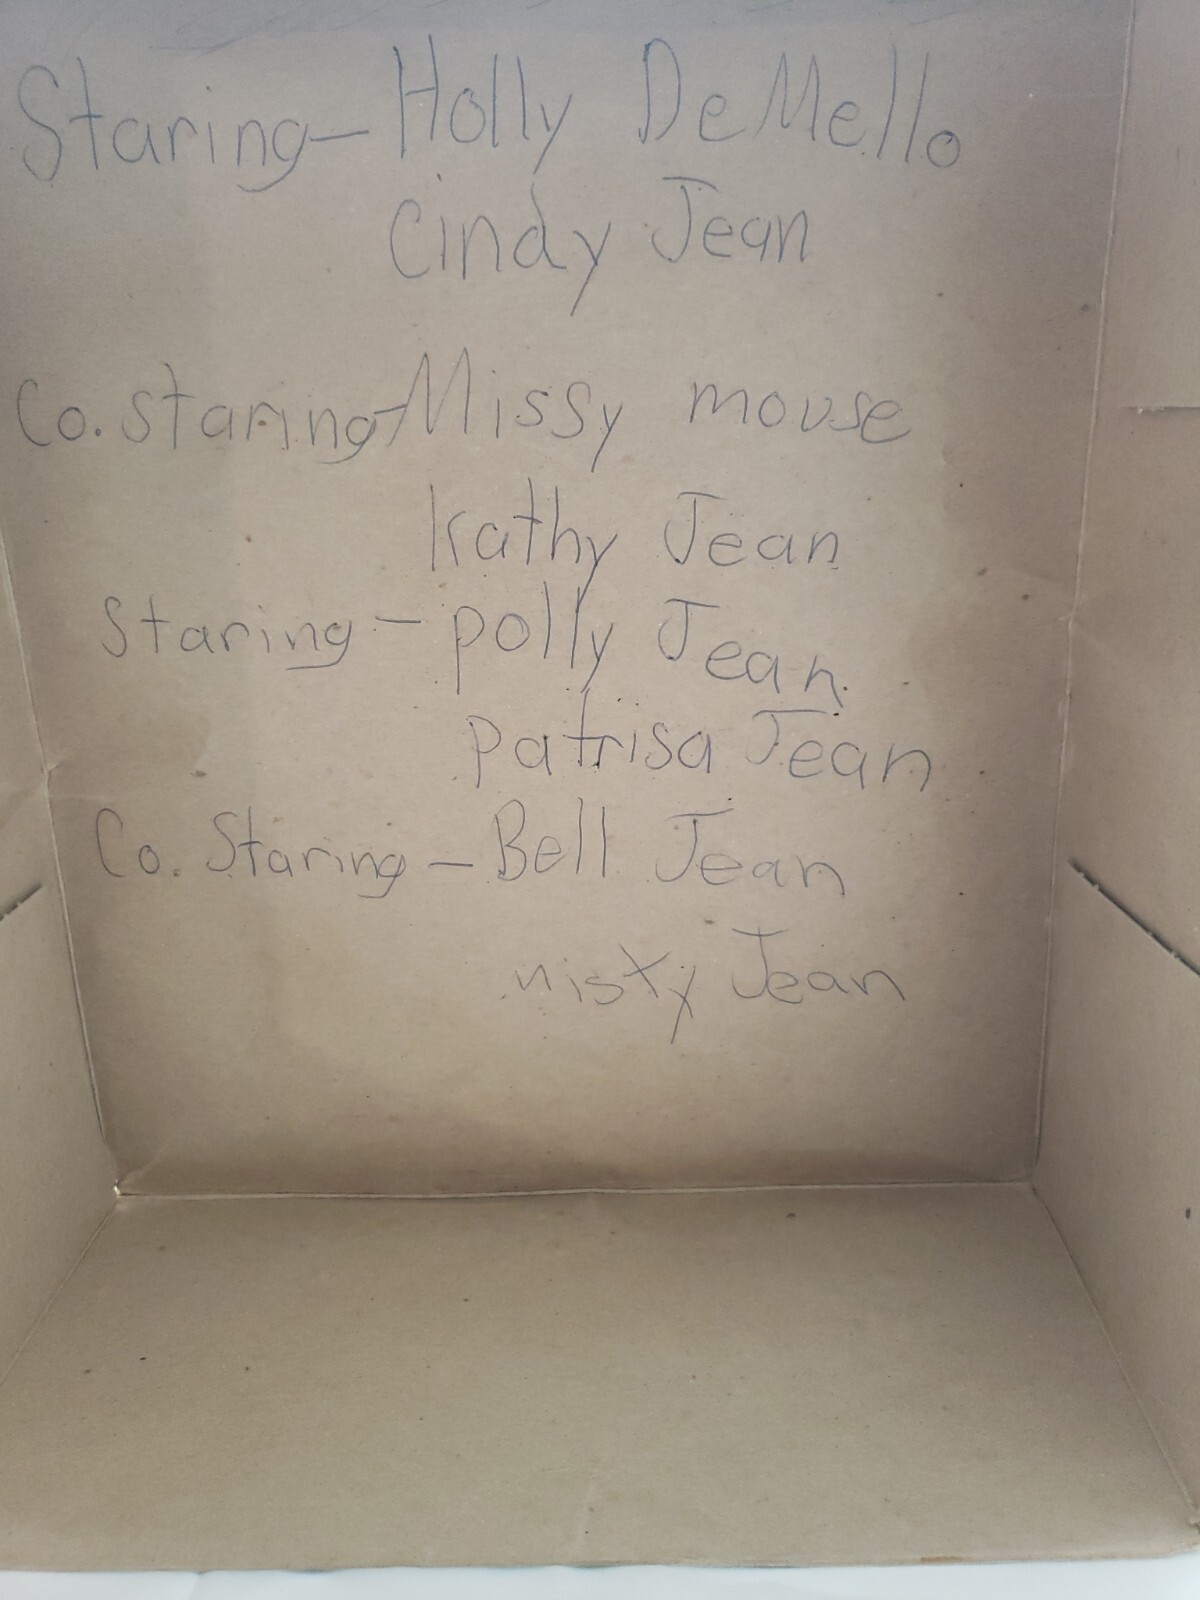 Staring - Holly DeMello
Cindy Jean
Co. staring - Missy mouse
Kathy Jean
Staring - polly Jean
patrisa Jean
Co. Staring - Bell Jean
misty Jean